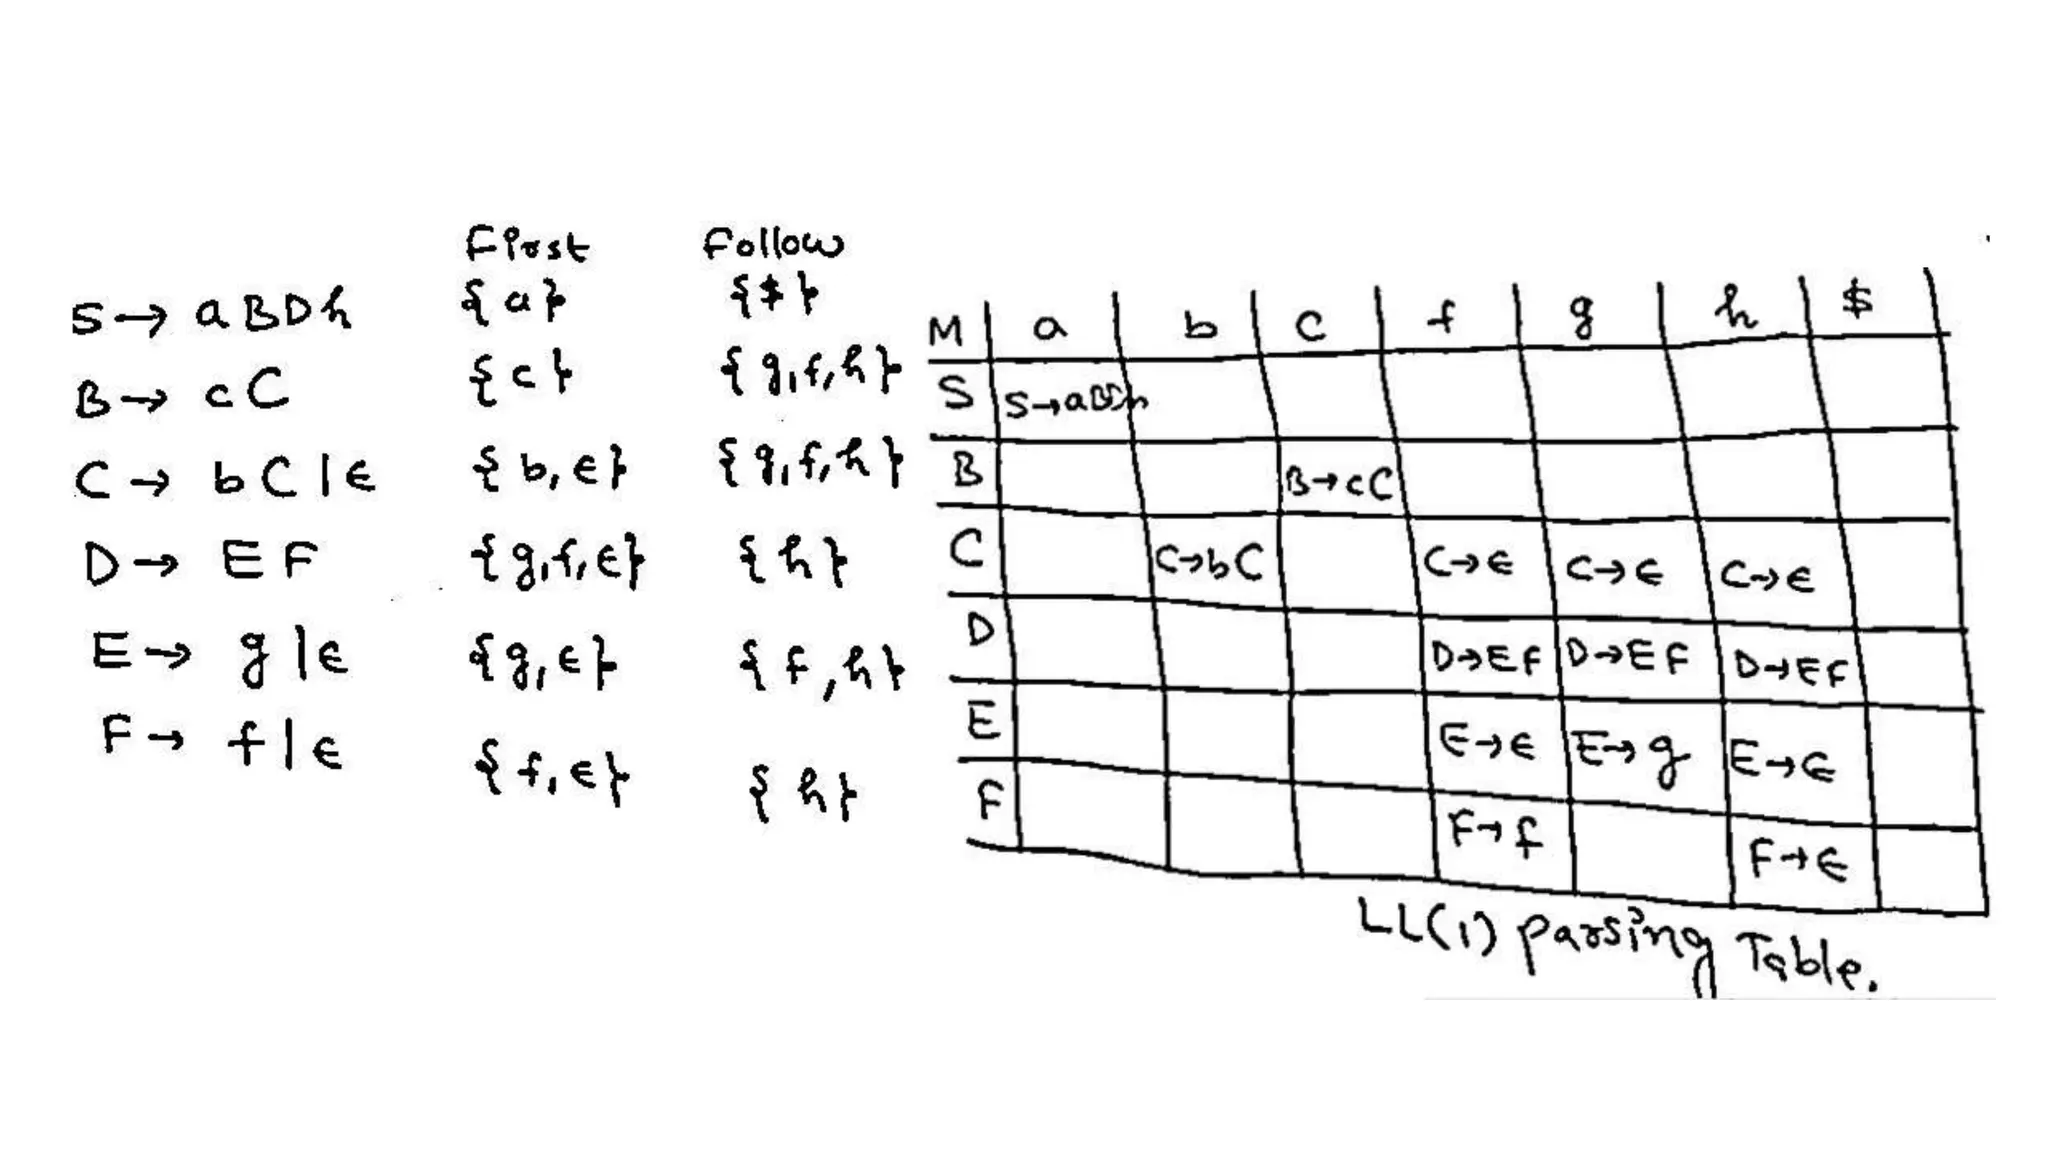 First Follow
S → aBDh {a} {$}
B → cC {c} {g,f,h}
C → bC|ϵ {b,ϵ} {g,f,h}
D → EF {g,f,ϵ} {h}
E → g|ϵ {g,ϵ} {f,h}
F → f|ϵ {f,ϵ} {h}
M a b c f g h $
S S→aBDh
B B→cC
C C→bC C→ϵ C→ϵ C→ϵ
D D→EF D→EF D→EF
E E→ϵ E→g E→ϵ
F F→f F→ϵ
LL(1) Parsing Table.